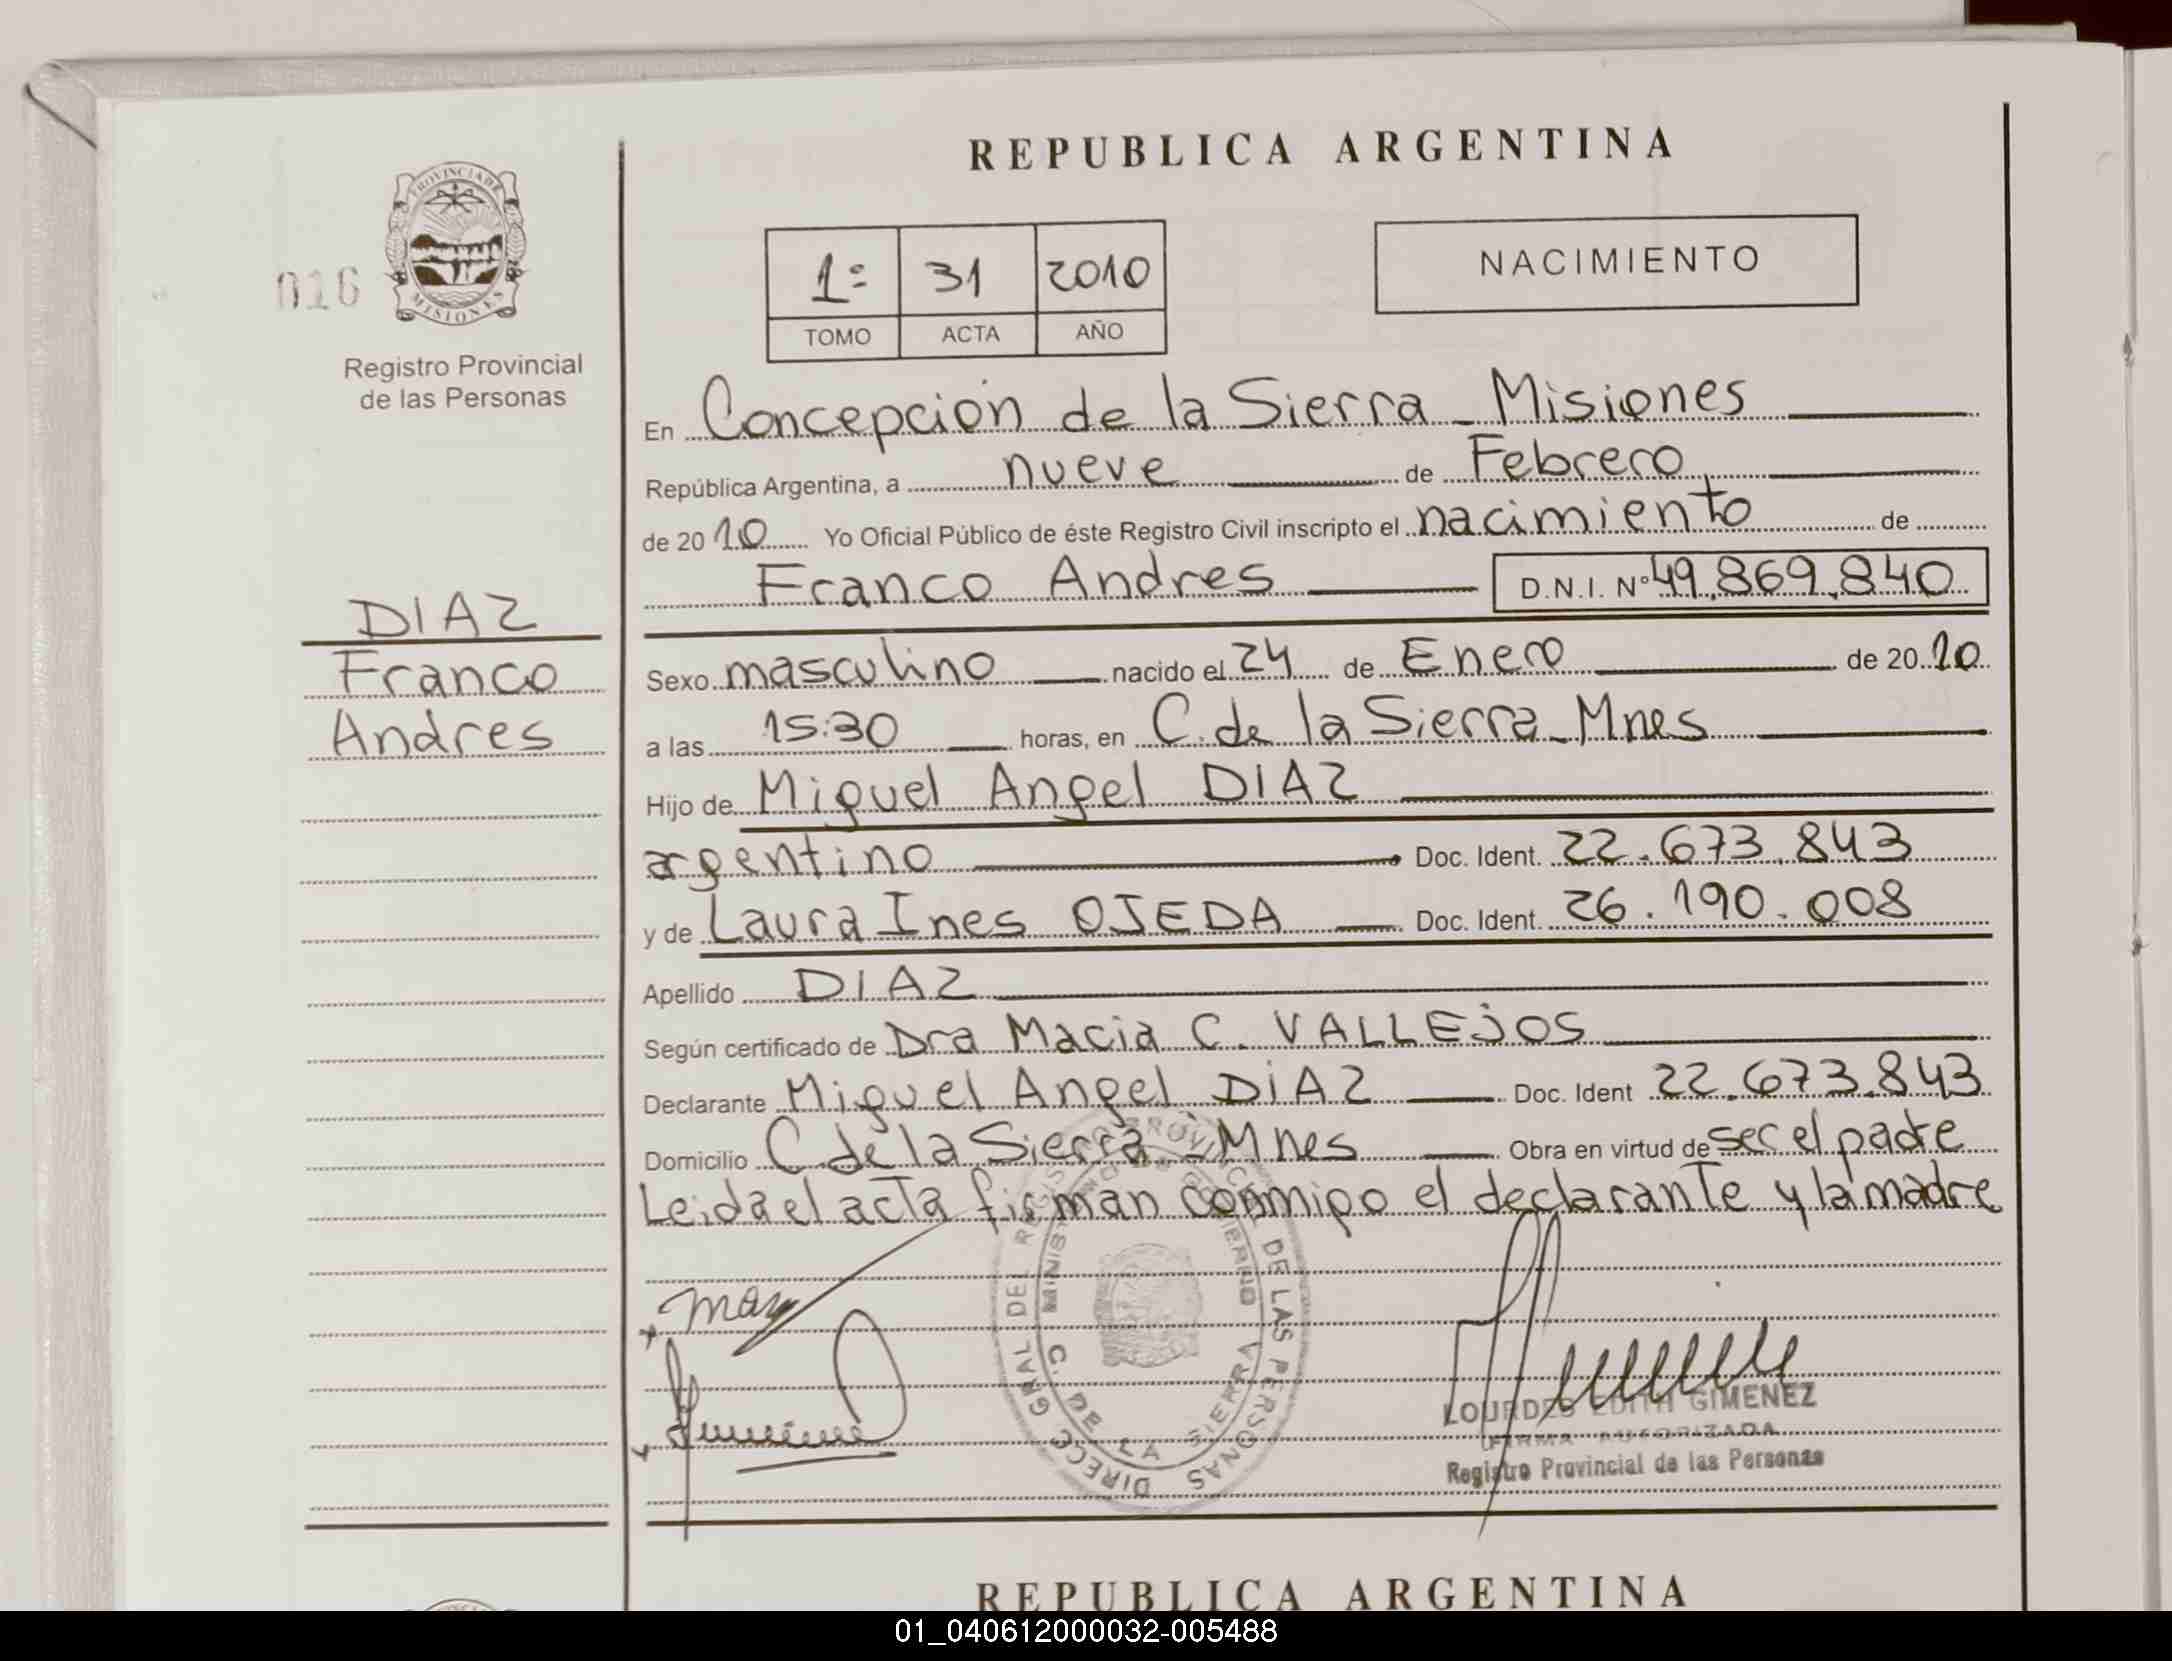 REPUBLICA ARGENTINA
016
PROVINCIA DE MISIONES
Registro Provincial
de las Personas
1º 31 2010
TOMO ACTA AÑO
NACIMIENTO
En Concepción de la Sierra - Misiones
República Argentina, a nueve de Febrero
de 2010 Yo Oficial Público de éste Registro Civil inscripto el nacimiento de
Franco Andres D.N.I. Nº 49.869.840
DIAZ
Franco
Andres
Sexo masculino nacido el 24 de Enero de 2010
a las 15:30 horas, en C. de la Sierra - Mnes
Hijo de Miguel Angel DIAZ
argentino Doc. Ident. 22.673.843
y de Laura Ines OJEDA Doc. Ident. 26.190.008
Apellido DIAZ
Según certificado de Dra Macia C. VALLEJOS
Declarante Miguel Angel DIAZ Doc. Ident 22.673.843
Domicilio C. de la Sierra - Mnes Obra en virtud de ser el padre
Leida el acta firman conmigo el declarante y la madre
DIRECC. GRAL DEL REGIS PROVINCIAL DE LAS PERSONAS
C. DE LA SIERRA
LOURDES EDITH GIMENEZ
FIRMA AUTORIZADA
Registro Provincial de las Personas
REPUBLICA ARGENTINA
01_040612000032-005488